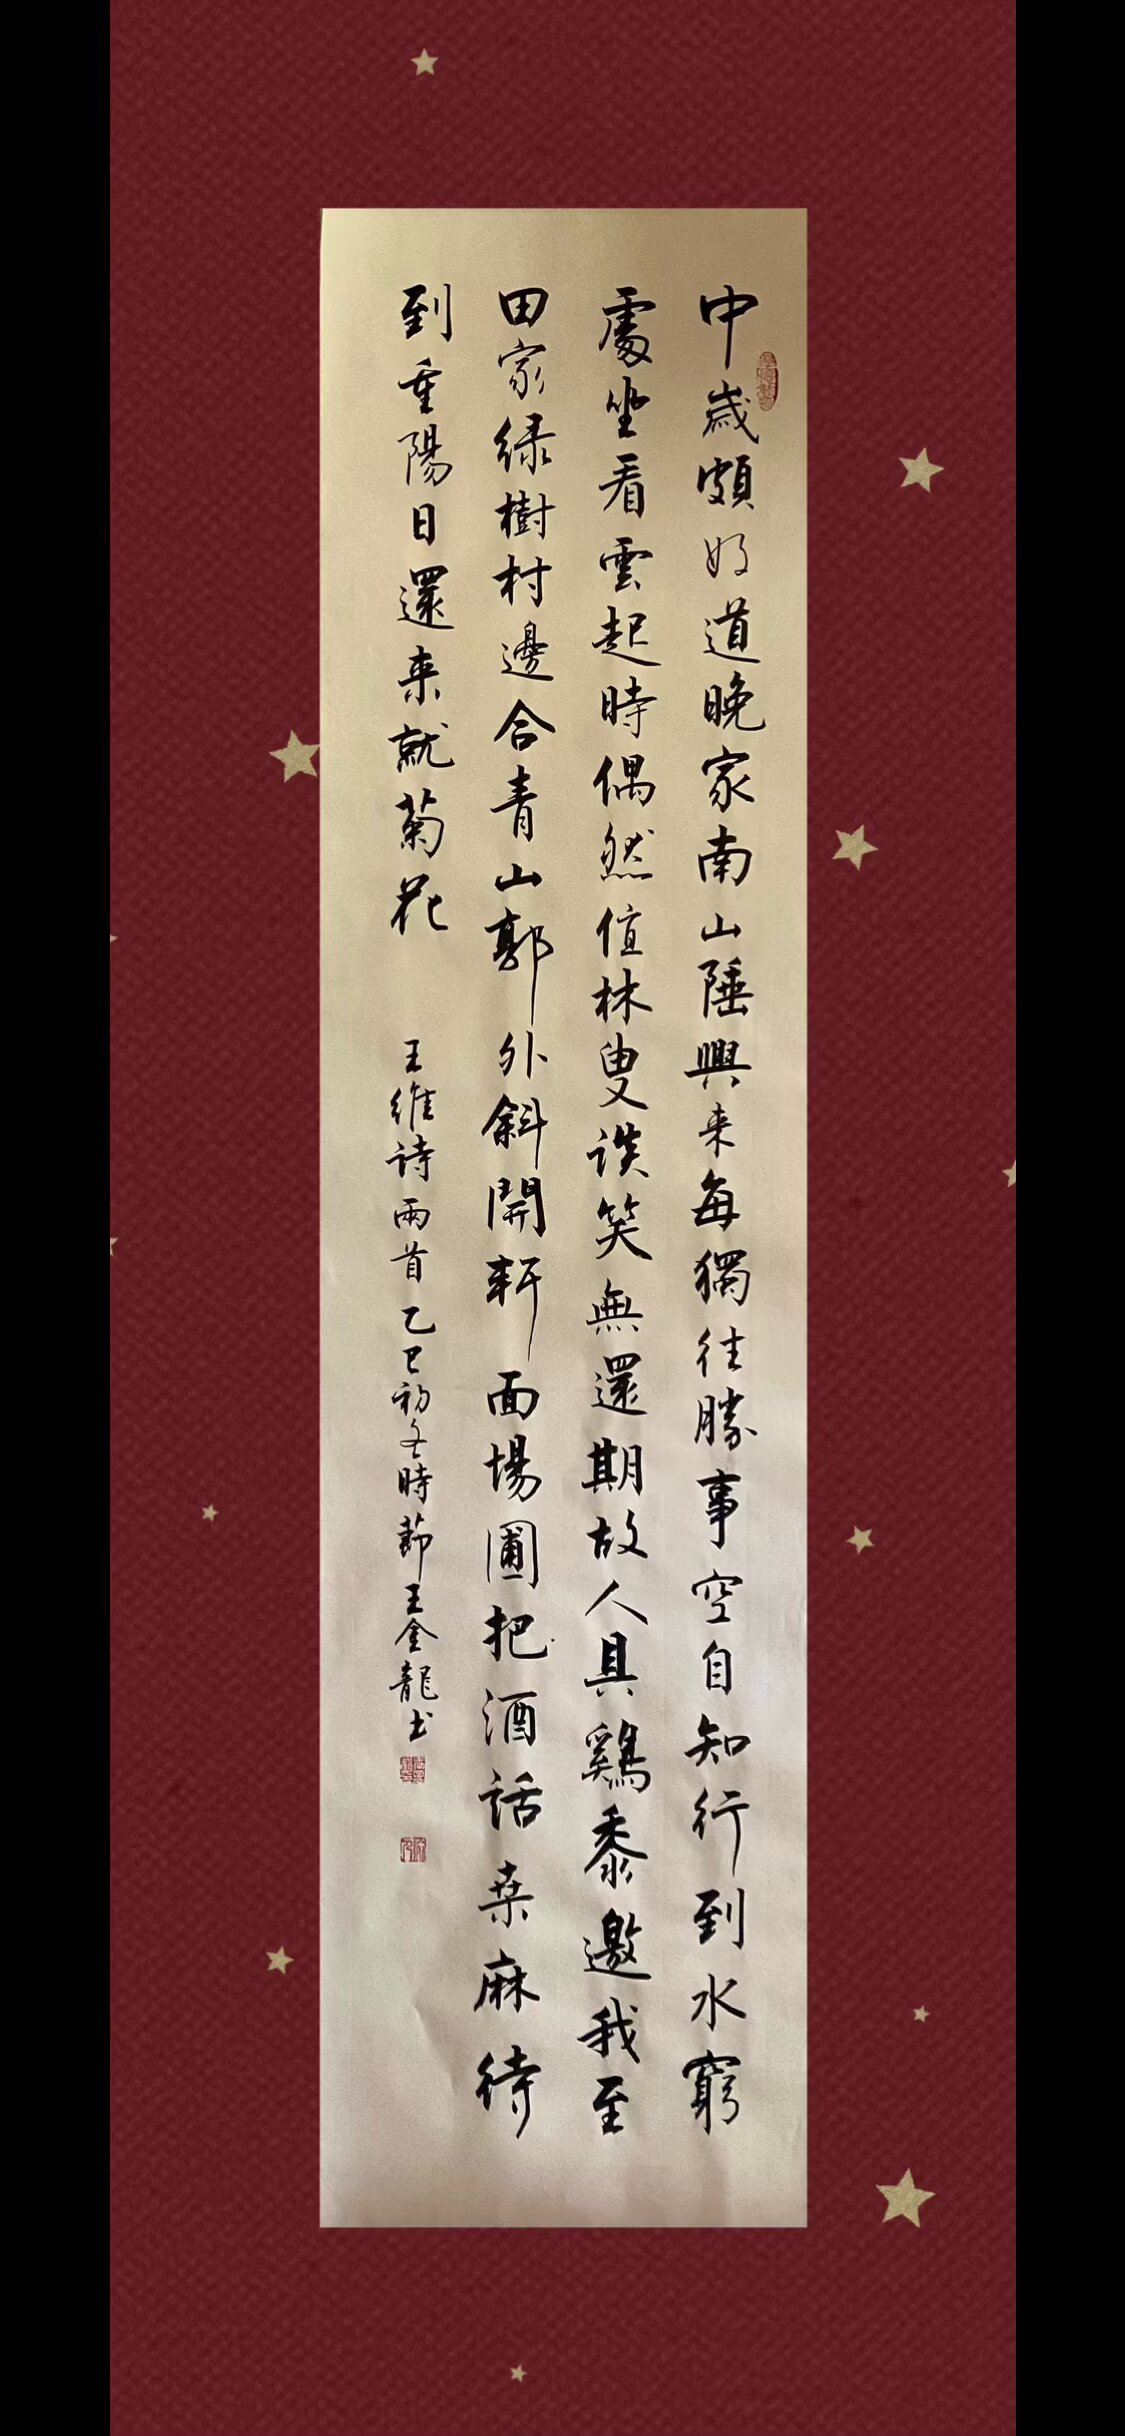 中歲頗好道晚家南山陲興来每獨往勝事空自知行到水窮
處坐看雲起時偶然值林叟談笑無還期故人具鷄黍邀我至
田家绿樹村邊合青山郭外斜開軒面場圃把酒話桒麻待
到重陽日還来就菊花
王維诗兩首乙巳初冬時節王金龍书